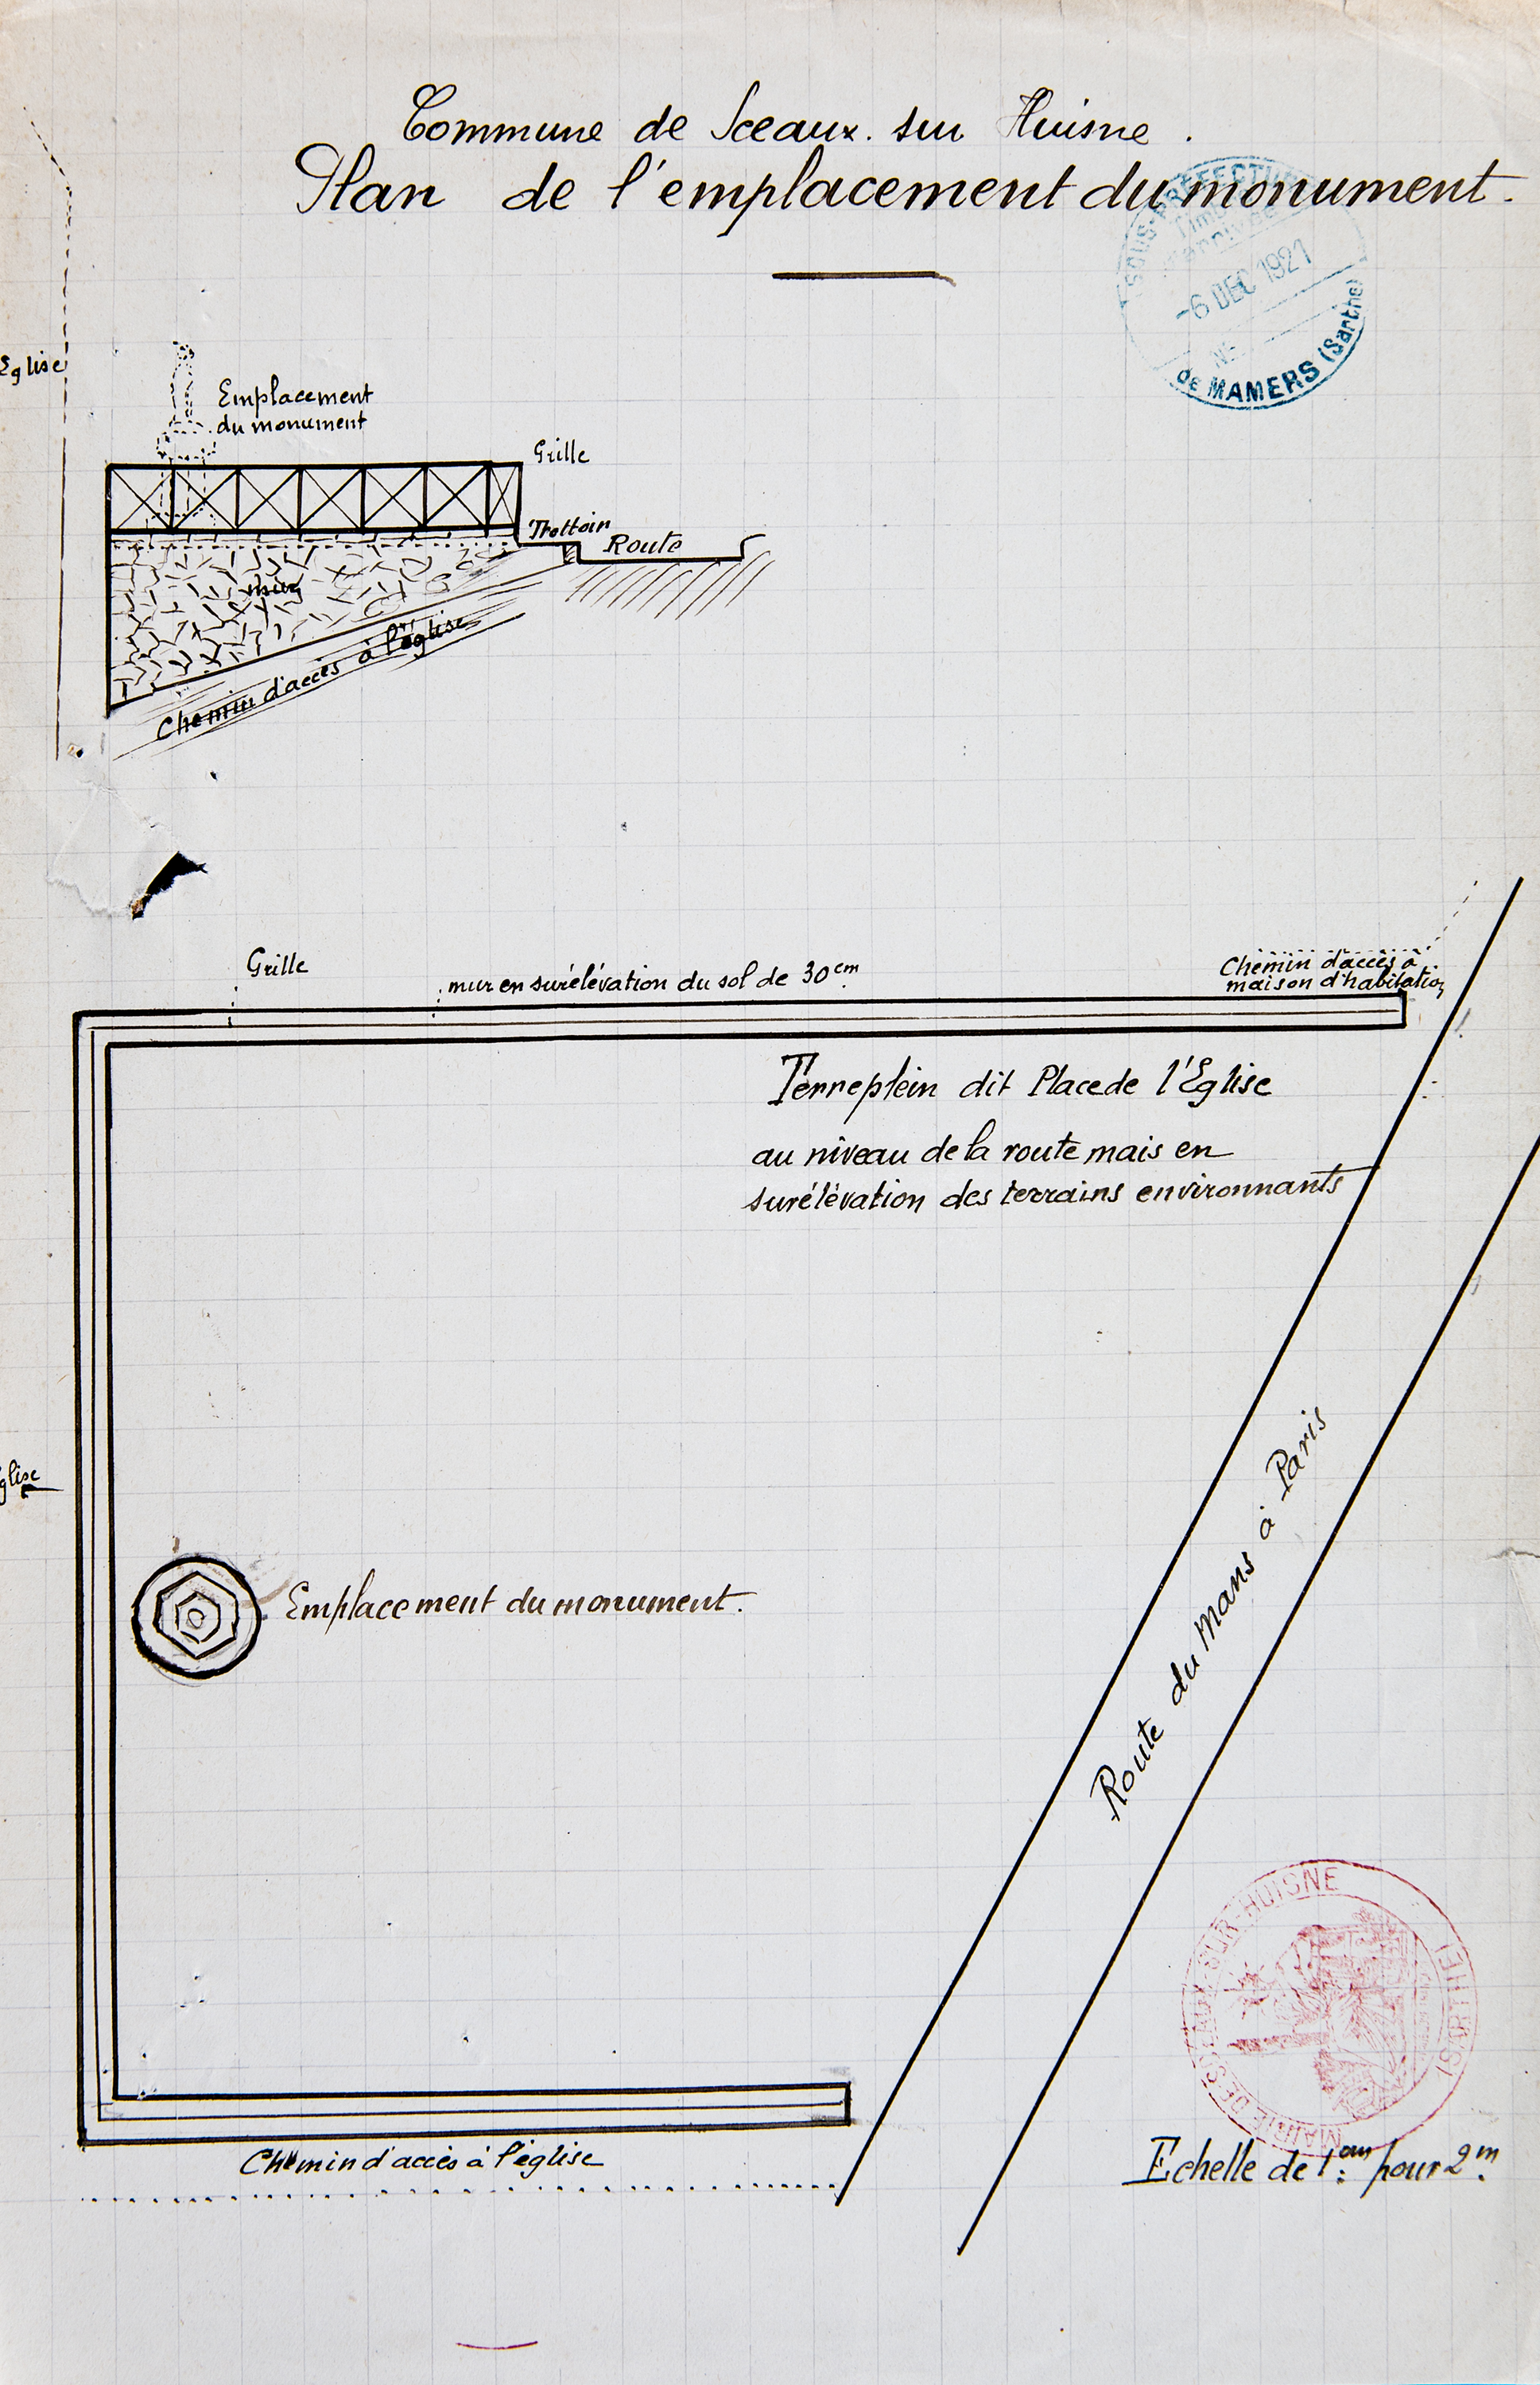 Commune de Sceaux. sur Huisne.
Plan de l'emplacement du monument.
SOUS-PRÉFECTURE
-6 DEC 1921
DE MAMERS (Sarthe)
Eglise
Emplacement
du monument
Grille
Trottoir
Route
mur
Chemin d'accès à l'église
Grille
mur en surélévation du sol de 30cm.
Chemin d'accès à
maison d'habitation
Terreplein dit Place de l'Eglise
au niveau de la route mais en
surélévation des terrains environnants
glise
Emplacement du monument.
Route du Mans à Paris
MAIRIE DE SCEAUX-SUR-HUISNE
(SARTHE)
Chemin d'accès à l'église
Echelle de 1cm. pour 2m.